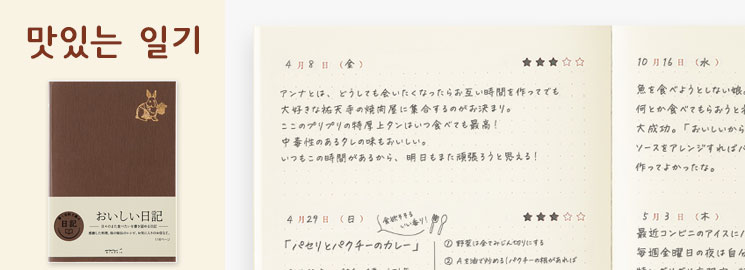 맛있는 일기
おいしい日記
日記
4月8日(金) ★★★☆☆
アンナとは、どうしても会いたくなったらお互い時間を作ってでも
大好きな祐天寺の焼肉屋に集合するのがお決まり。
ここのプリプリの特厚上タンはいつ食べても最高!
中毒性のあるタレの味もおいしい。
いつもこの時間があるから、明日もまた頑張ろうと思える!
4月29日(日) ★★★☆☆
食欲そそる
いい香り!
「パセリとパクチーのカレー」
① 野菜は全てみじん切りにする
② Aを油で炒める(パクチーの根があれば
10月16日(水)
魚を食べようとしない娘。
何とか食べてもらおうと
大成功。「おいしいから
ソースをアレンジすれば
作ってよかったな。
5月3日(木)
最近コンビニのアイスに
毎週金曜日の夜は自